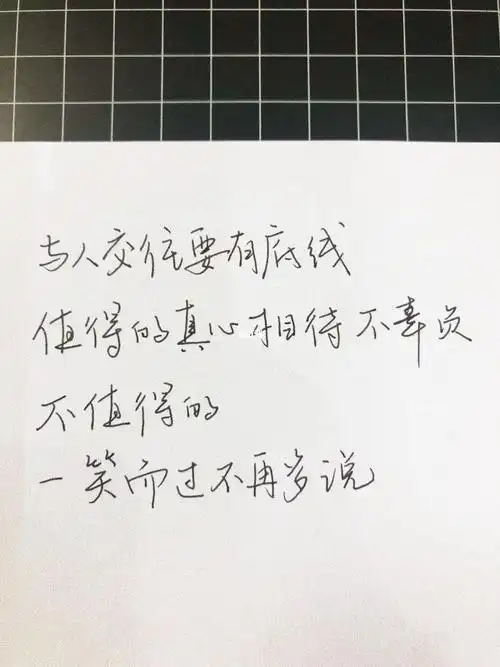 与人交往要有底线
值得的真心相待不辜负
不值得的
一笑而过不再多说